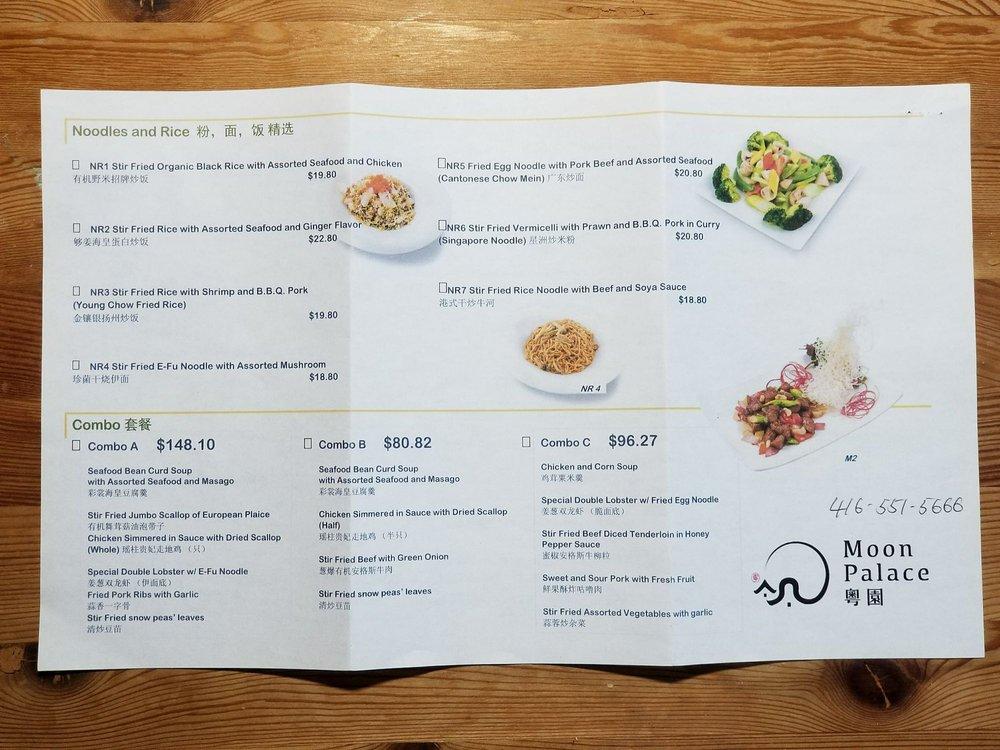 Noodles and Rice 粉，面，饭精选
NR1 Stir Fried Organic Black Rice with Assorted Seafood and Chicken
有机野米招牌炒饭
$19.80
NR2 Stir Fried Rice with Assorted Seafood and Ginger Flavor
够姜海皇蛋白炒饭
$22.80
NR3 Stir Fried Rice with Shrimp and B.B.Q. Pork
(Young Chow Fried Rice)
金镶银扬州炒饭
$19.80
NR4 Stir Fried E-Fu Noodle with Assorted Mushroom
珍菌干烧伊面
$18.80
NR5 Fried Egg Noodle with Pork Beef and Assorted Seafood
(Cantonese Chow Mein) 广东炒面
$20.80
NR6 Stir Fried Vermicelli with Prawn and B.B.Q. Pork in Curry
(Singapore Noodle) 星洲炒米粉
$20.80
NR7 Stir Fried Rice Noodle with Beef and Soya Sauce
港式干炒牛河
$18.80
NR 4
Combo 套餐
Combo A $148.10
Seafood Bean Curd Soup
with Assorted Seafood and Masago
彩裳海皇豆腐羹
Stir Fried Jumbo Scallop of European Plaice
有机舞茸菇油泡带子
Chicken Simmered in Sauce with Dried Scallop
(Whole) 瑶柱贵妃走地鸡 （只）
Special Double Lobster w/ E-Fu Noodle
姜葱双龙虾 （伊面底）
Fried Pork Ribs with Garlic
蒜香一字骨
Stir Fried snow peas' leaves
清炒豆苗
Combo B $80.82
Seafood Bean Curd Soup
with Assorted Seafood and Masago
彩裳海皇豆腐羹
Chicken Simmered in Sauce with Dried Scallop
(Half)
瑶柱贵妃走地鸡 （半只）
Stir Fried Beef with Green Onion
葱爆有机安格斯牛肉
Stir Fried snow peas' leaves
清炒豆苗
Combo C $96.27
Chicken and Corn Soup
鸡茸粟米羹
Special Double Lobster w/ Fried Egg Noodle
姜葱双龙虾 （脆面底）
Stir Fried Beef Diced Tenderloin in Honey
Pepper Sauce
蜜椒安格斯牛柳粒
Sweet and Sour Pork with Fresh Fruit
鲜果酥炸咕噜肉
Stir Fried Assorted Vegetables with garlic
蒜蓉炒杂菜
M2
416-551-5666
Moon
Palace
粤園